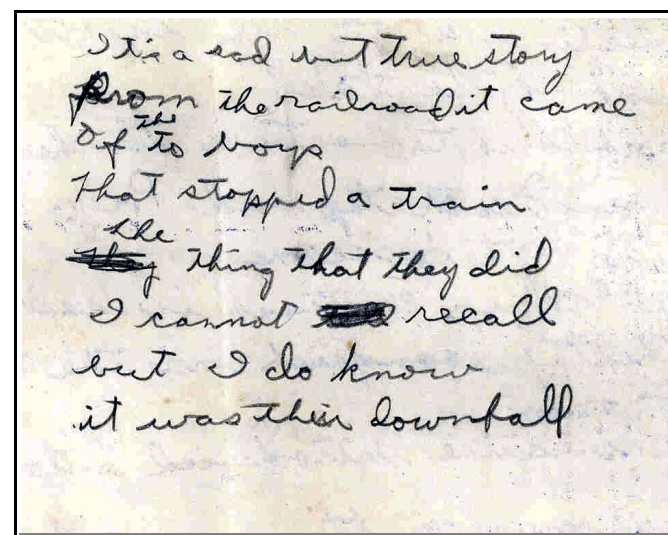 It's a sad but true story
From the railroad it came
Of the to boys
That stopped a train
the thing that they did
I cannot recall
but I do know
it was their downfall